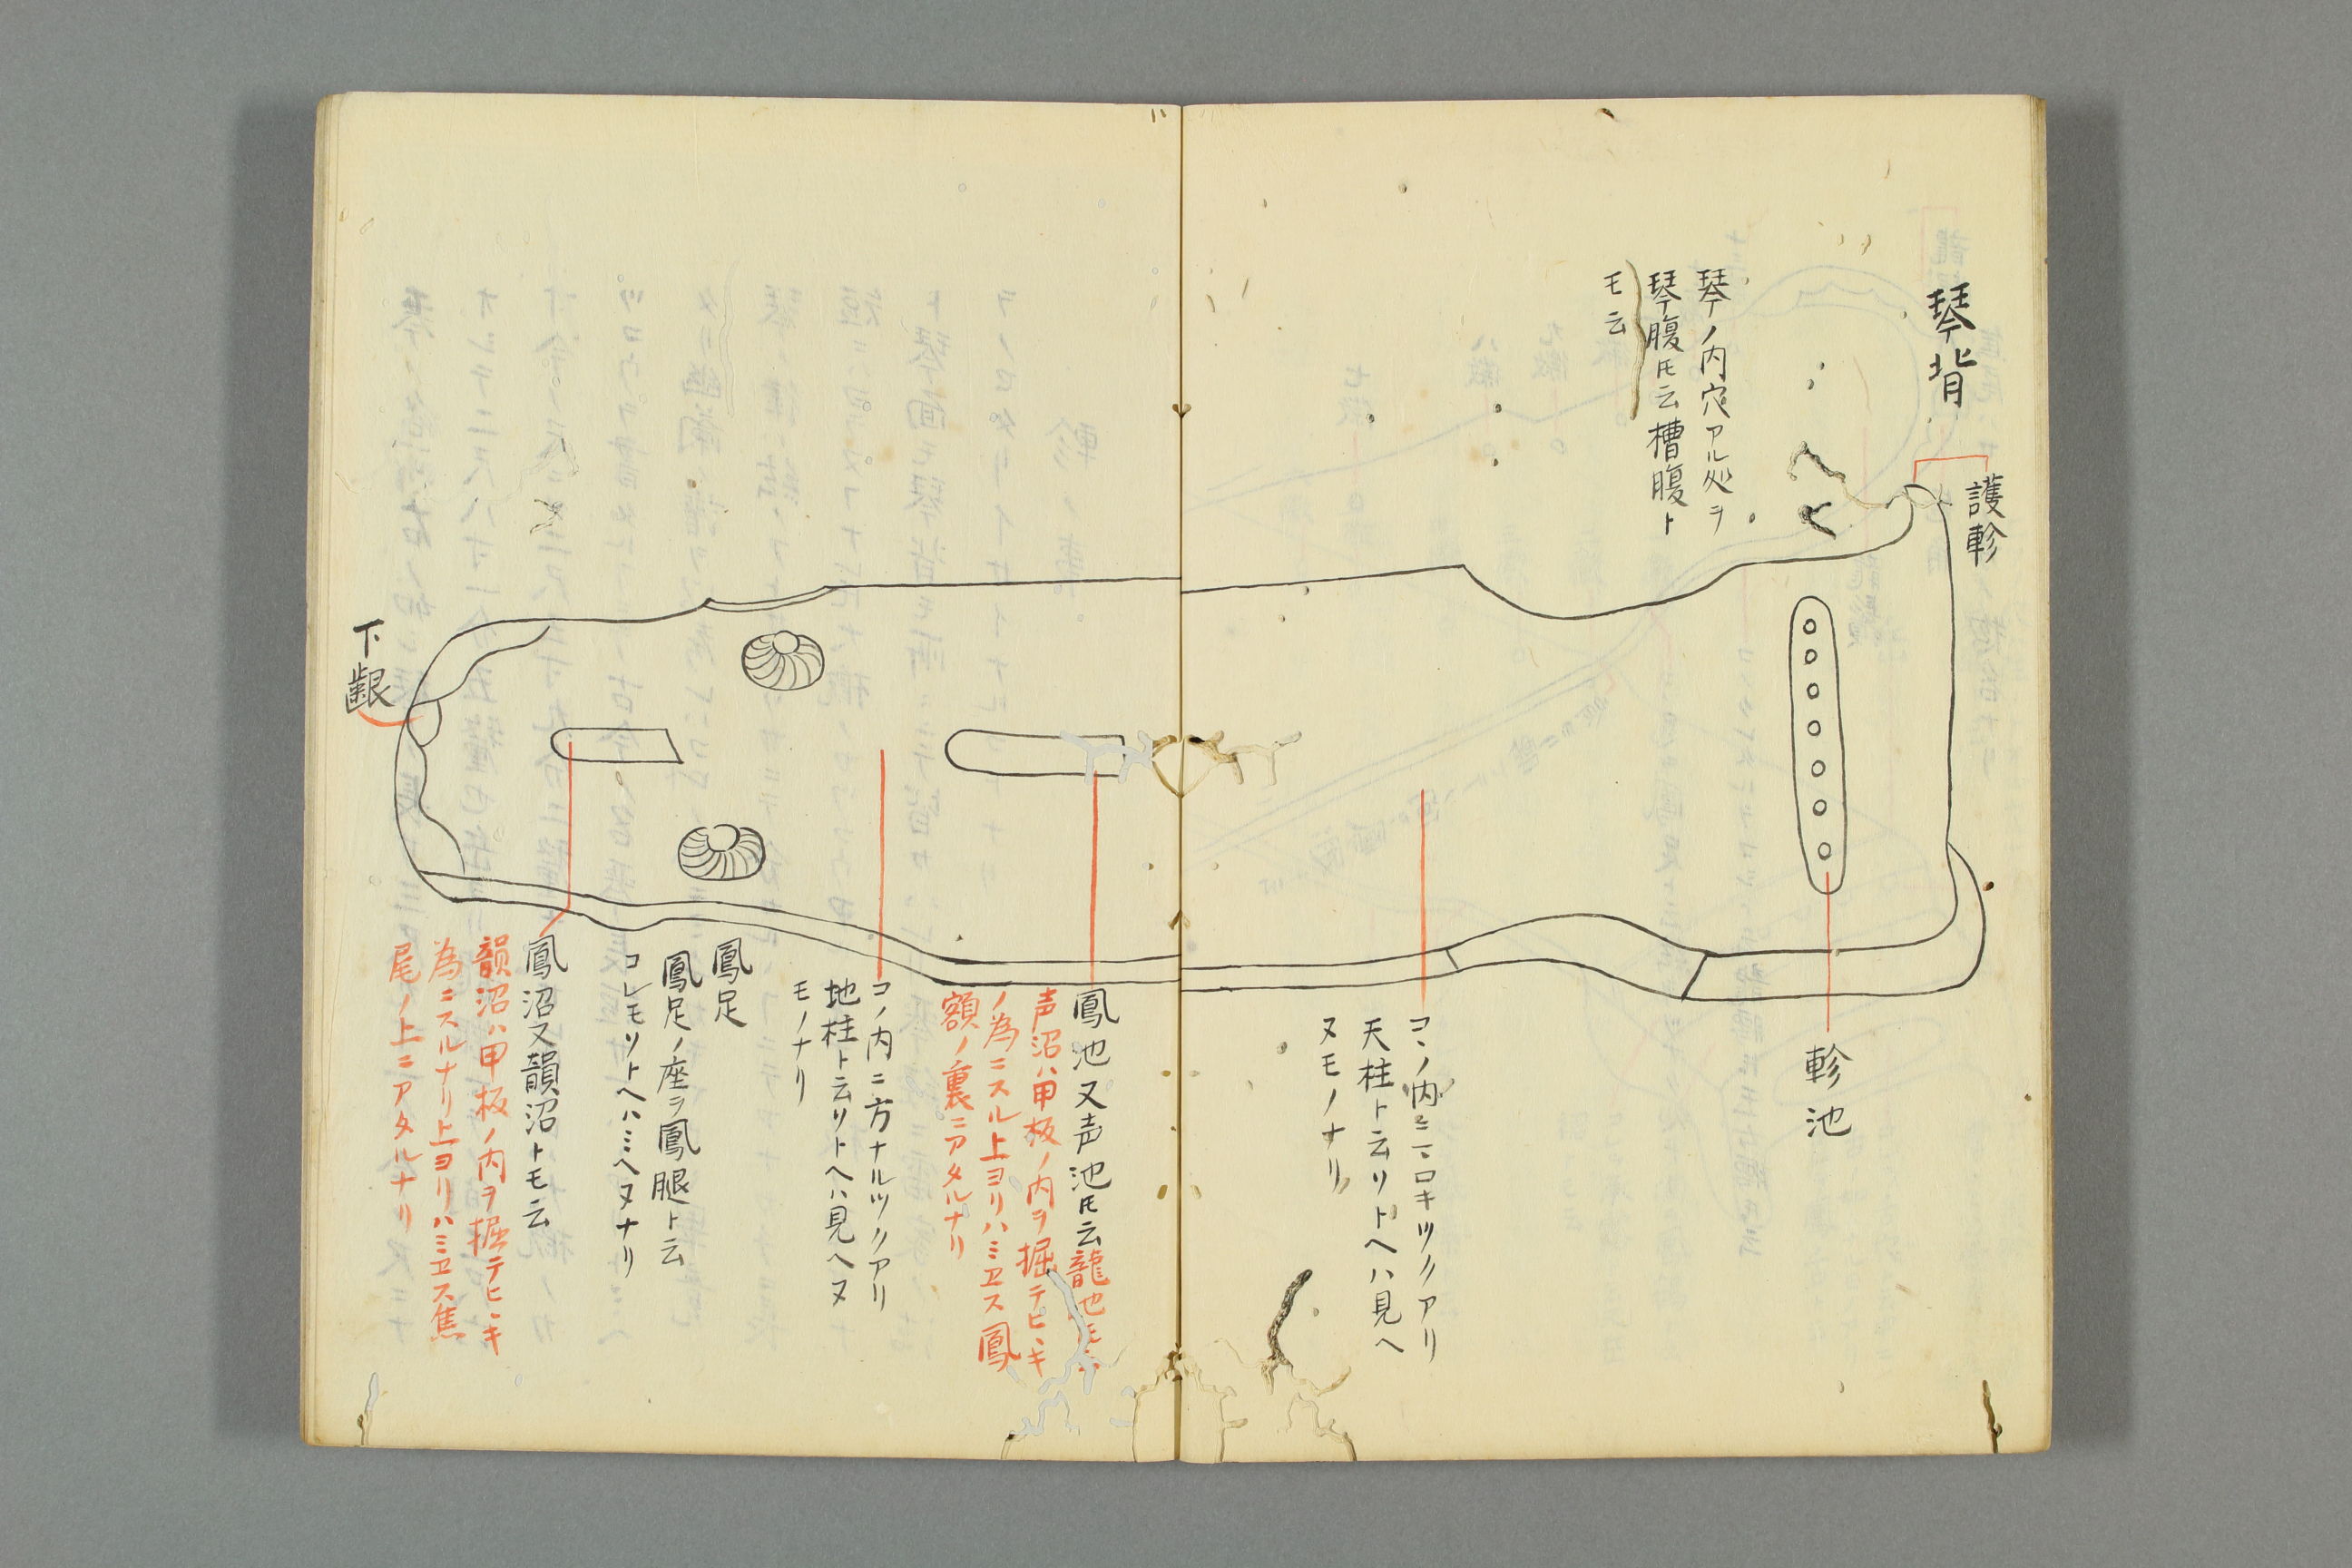 琴背
護軫
琴ノ内穴アル処ヲ
琴腹𪜈云槽腹ト
モ云
軫池
コノ内ニマロキツノアリ
天柱ト云リトヘハ見ヘ
ヌモノナリ
鳳池又声池𪜈云龍池𪜈云
声沼ハ甲板ノ内ヲ掘テヒヽキ
ノ為ニスル上ヨリハミヱス鳳
額ノ裏ニアタルナリ
コノ内ニ方ナルツノアリ
地柱ト云リトヘハ見ヘヌ
モノナリ
鳳足
鳳足ノ座ヲ鳳腿ト云
コレモリトヘハミヘヌナリ
鳳沼又韻沼トモ云
韻沼ハ甲板ノ内ヲ掘テヒヽキ
為ニスルナリ上ヨリハミヱス焦
尾ノ上ニアタルナリ
下齦